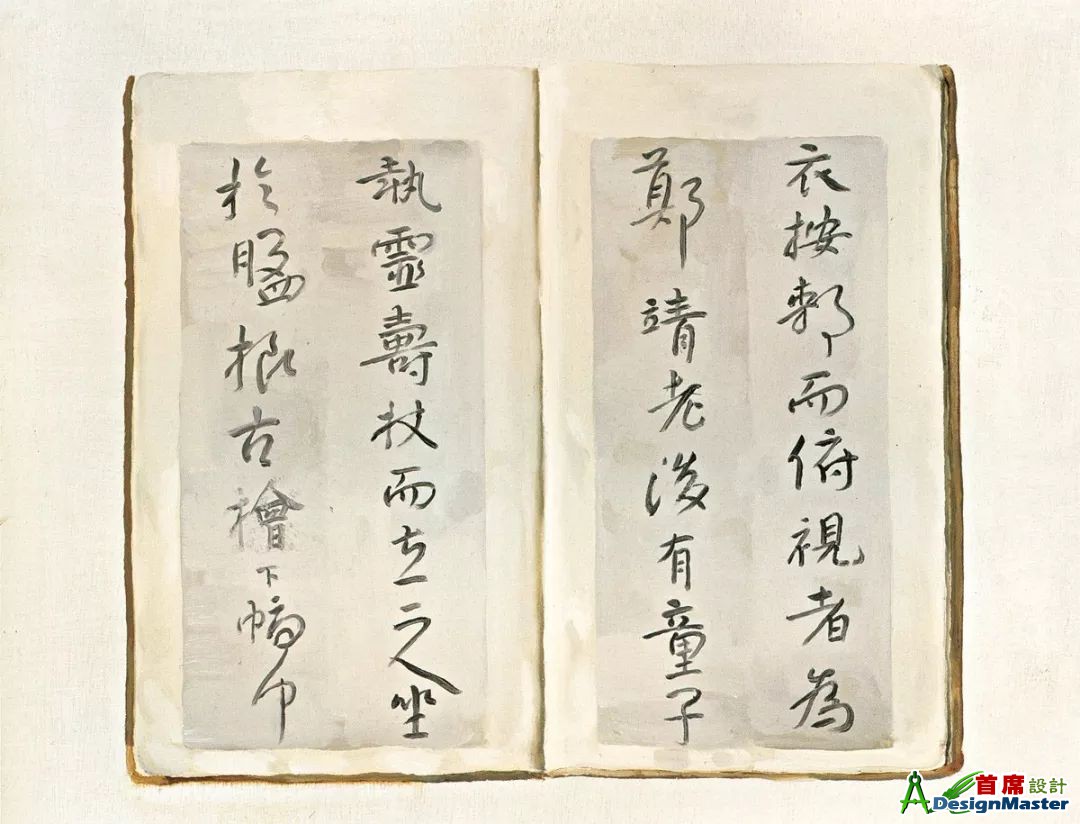 衣按䣛而俯視者為
鄭靖老後有童子
執靈壽杖而立二人坐
於盤根古檜下幅巾
首席設計
DesignMaster